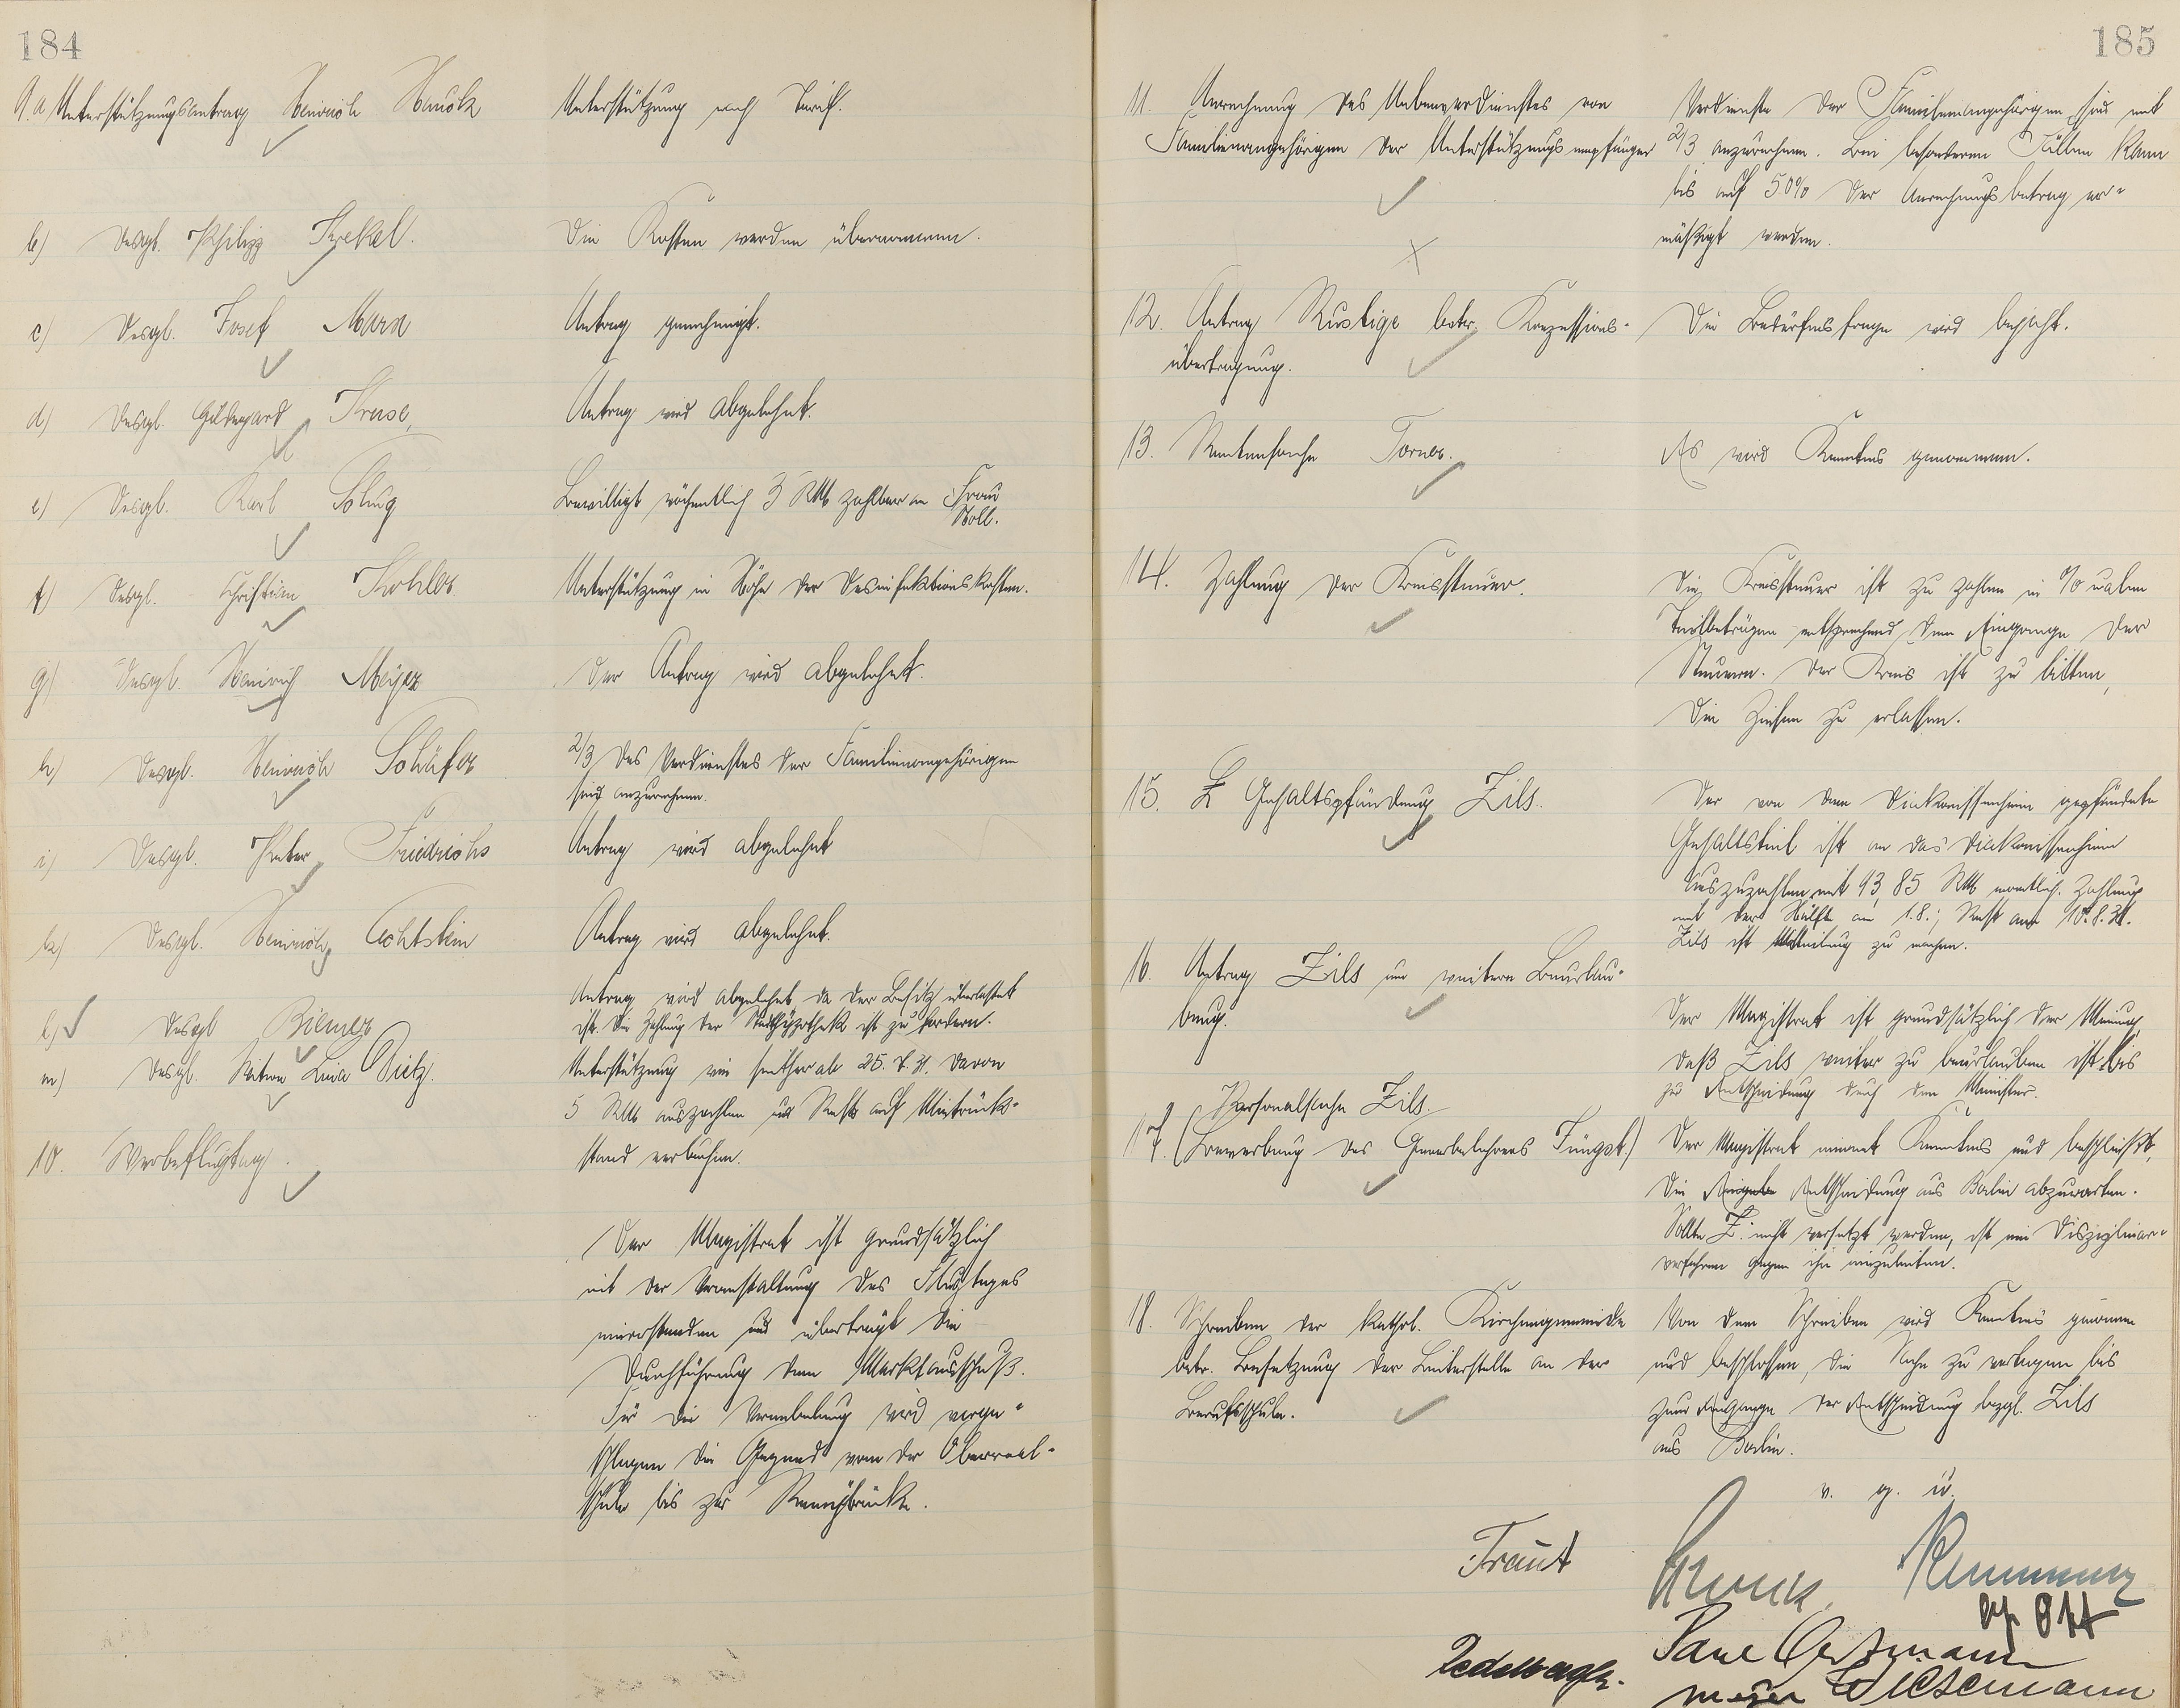 184
9.a Unterstützungsantrag Heinrich Hauck
Unterstützung nach Tarif.
b) Desgl. Philipp Krekel.
Die Kosten werden übernommen.
c) Desgl. Josef Marx
Antrag genehmigt.
d) Desgl. Hildegard Kruse,
Antrag wird abgelehnt.
e) Desgl. Karl Schug
Bewilligt wöchentlich 3 RM zahlbar an Frau
Noll.
f) Desgl. Christian Kohler
Unterstützung in Höhe der Desinfektionskosten.
g) Desgl. Heinrich Meyer
Der Antrag wird abgelehnt.
h) Desgl. Heinrich Schäfer
2/3 des Verdienstes der Familienangehörigen
sind anzurechnen.
i) Desgl. Peter Friedrichs
Antrag wird abgelehnt
k) Desgl. Heinrich Achtstein
Antrag wird abgelehnt.
l) Desgl Biemer
Antrag wird abgelehnt, da der Besitz überlastet
ist. Die Zahlung der Stadthypothek ist zu fordern.
m) Desgl. Witwe Lina Dietz.
Unterstützung wie seither ab 25. 7. 31. Davon
5 RM auszahlen und Rest auf Mietrück-
stand verbuchen.
10. Werbeflugtag.
Der Magistrat ist grundsätzlich
mit der Veranstaltung des Flugtages
einverstanden und überträgt die
Durchführung dem Marktausschuß.
Für die Veranstaltung wird vorge-
schlagen die Gegend von der Oberreal-
schule bis zur
185
11. Anrechnung des Nebenverdienstes von
Familienangehörigen der Unterstützungsempfänger
Verdienste der Familienangehörigen sind mit
2/3 anzurechnen. Bei besonderen Fällen kann
bis auf 50% der Anrechnungsbetrag er-
mäßigt werden.
12. Antrag Rustige betr. Konzessions-
übertragung.
Die Bedürfnisfrage wird bejaht.
13. Rentensache Torner.
Es wird Kenntnis genommen.
14. Zahlung der Kreissteuer.
Die Kreissteuer ist zu zahlen in %ualen
Teilbeträgen entsprechend dem Eingange der
Steuern. Der Kreis ist zu bitten,
die Zinsen zu erlassen.
15. Gehaltspfändung Zils.
Der von dem Diakonissenheim gepfändete
Gehaltsteil ist an das Diakonissenheim
auszuzahlen mit 93,85 RM monatlich. Zahlung
mit der Hälfte am 1.8.; Rest am 10.8.31.
Zils ist Mitteilung zu machen.
16. Antrag Zils um weitere Beurlau-
bung.
Der Magistrat ist grundsätzlich der Meinung,
daß Zils weiter zu beurlauben ist bis
zur Entscheidung durch den Minister.
Personalsache Zils.
17. (Bewerbung des Gewerbelehrers Füngst.)
Der Magistrat nimmt Kenntnis und beschließt,
die Entscheidung aus Berlin abzuwarten.
Sollte Z. nicht versetzt werden, ist ein Disziplinar-
verfahren gegen ihn einzuleiten.
18. Schreiben der kathol. Kirchengemeinde
betr. Besetzung der Leiterstelle an der
Berufsschule.
Von dem Schreiben wird Kenntnis genommen
und beschlossen, die Sache zu vertagen bis
zum Eingange der Entscheidung bezgl. Zils
aus Berlin.
v. g. u.
Traut